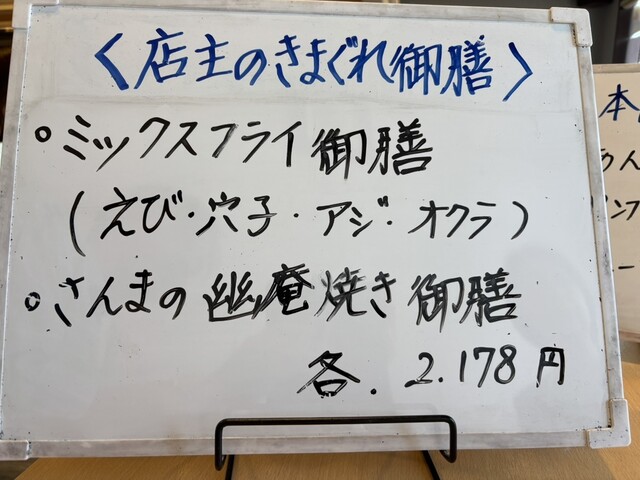 〈店主のきまぐれ御膳〉
○ミックスフライ御膳
(えび・穴子・アジ・オクラ)
○さんまの幽庵焼き御膳
各. 2.178円
本
あん
ンフ
ー